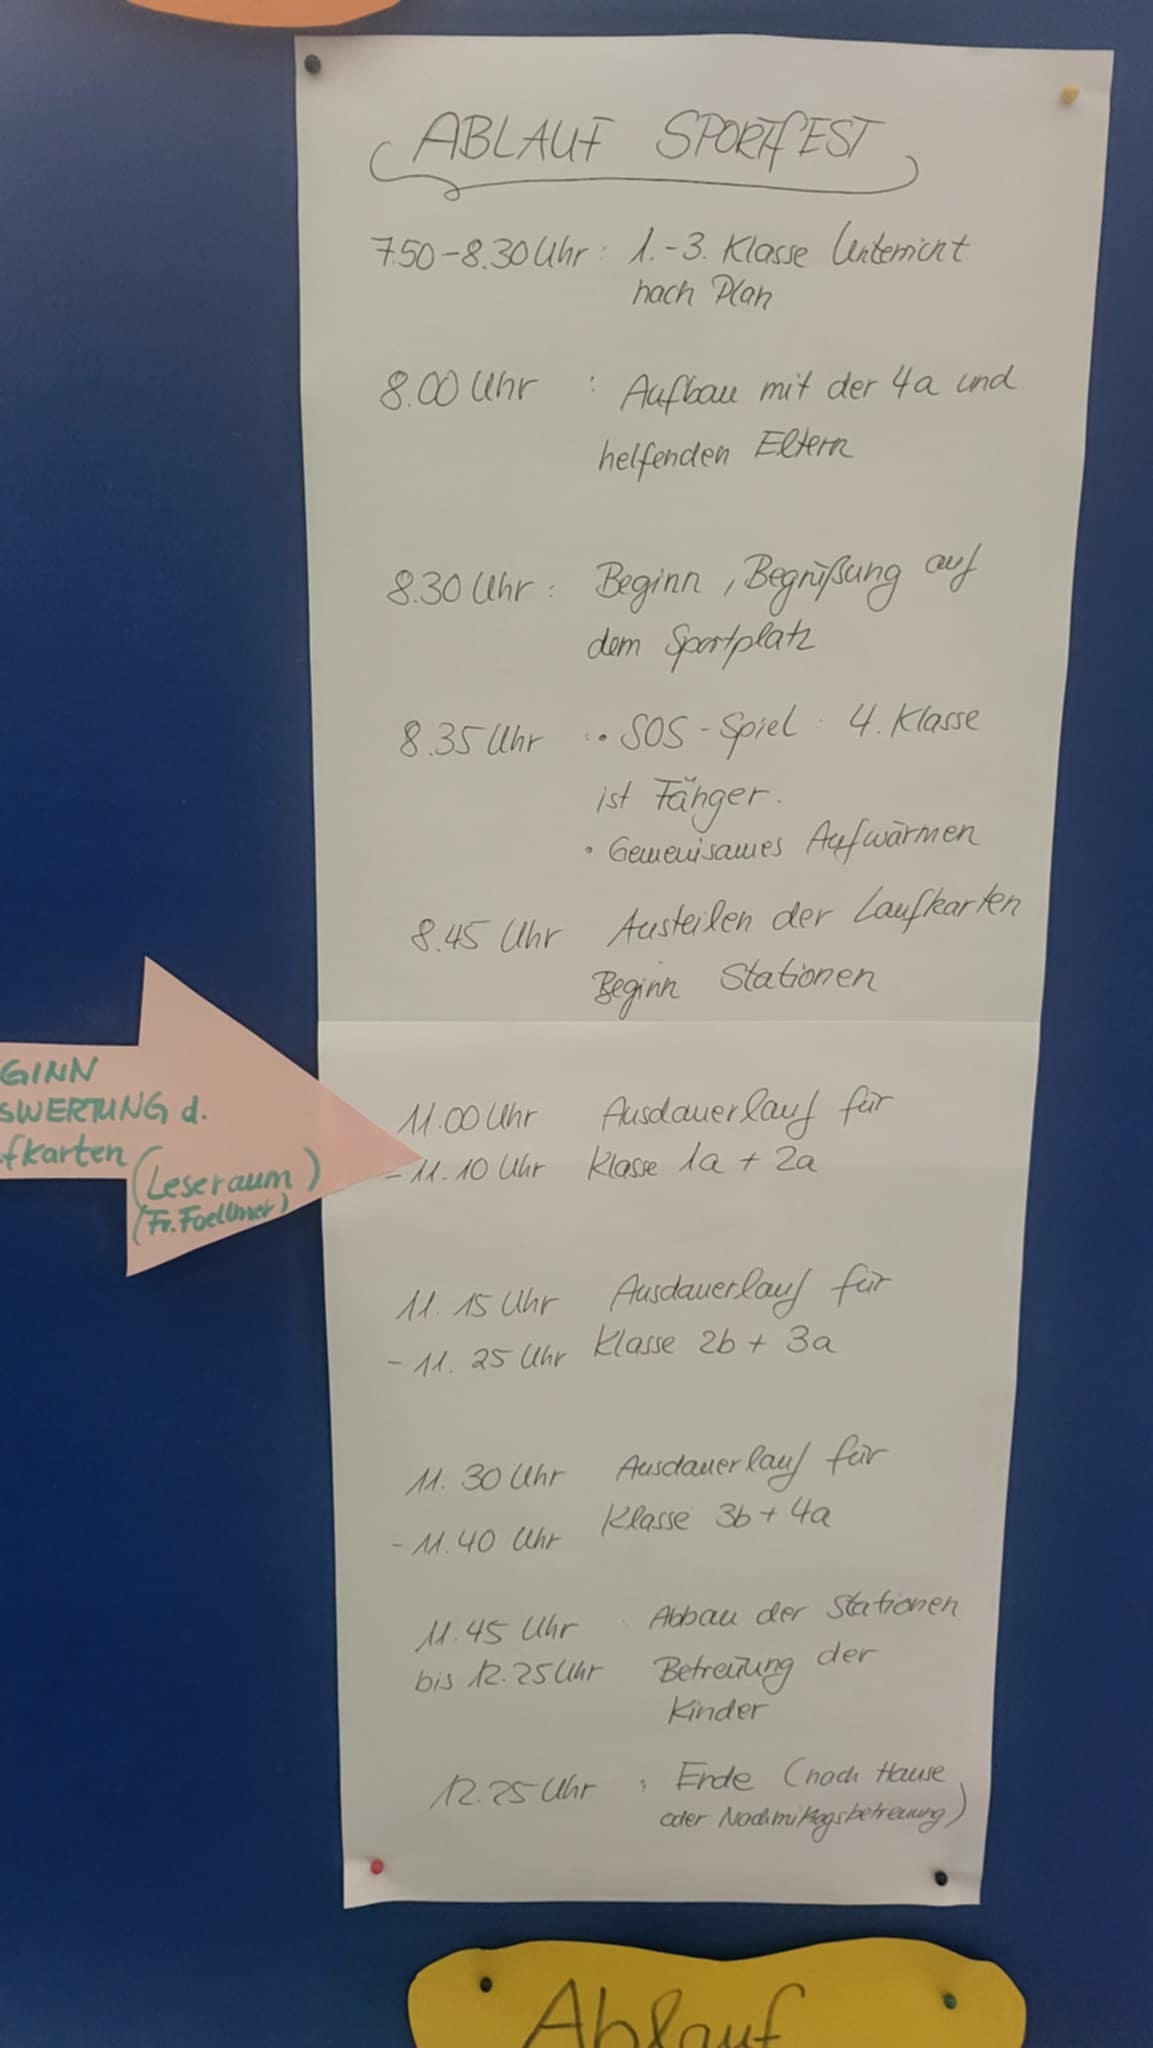 ABLAUF SPORTFEST
7.50-8.30 Uhr: 1.-3. Klasse Unterricht
nach Plan
8.00 Uhr : Aufbau mit der 4a und
helfenden Eltern
8.30 Uhr: Beginn, Begrüßung auf
dem Sportplatz
8.35 Uhr : • SOS-Spiel : 4. Klasse
ist Fänger.
• Gemeinsames Aufwärmen
8.45 Uhr Austeilen der Laufkarten
Beginn Stationen
GINN
SWERTUNG d.
fkarten (Leseraum)
(Fr. Foellmer)
11.00 Uhr Ausdauerlauf für
- 11.10 Uhr Klasse 1a + 2a
11.15 Uhr Ausdauerlauf für
- 11.25 Uhr Klasse 2b + 3a
11.30 Uhr Ausdauerlauf für
- 11.40 Uhr Klasse 3b + 4a
11.45 Uhr : Abbau der Stationen
bis 12.25 Uhr Betreuung der
Kinder
12.25 Uhr : Ende (nach Hause
oder Nachmittagsbetreuung)
Ablauf